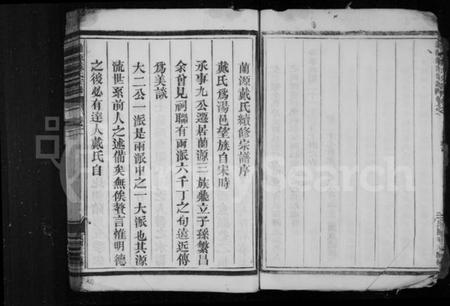 蘭源戴氏續修宗譜序
戴氏為湯邑望族自宋時
承事九公遷居蘭源三族鼎立子孫繁昌
余曾見祠聯有兩派六千丁之句遠近傳
為美談
大二公一派是兩派中之一大派也其源
流世系前人之述備矣無俟贅言惟明德
之後必有達人戴氏自
FamilySearch